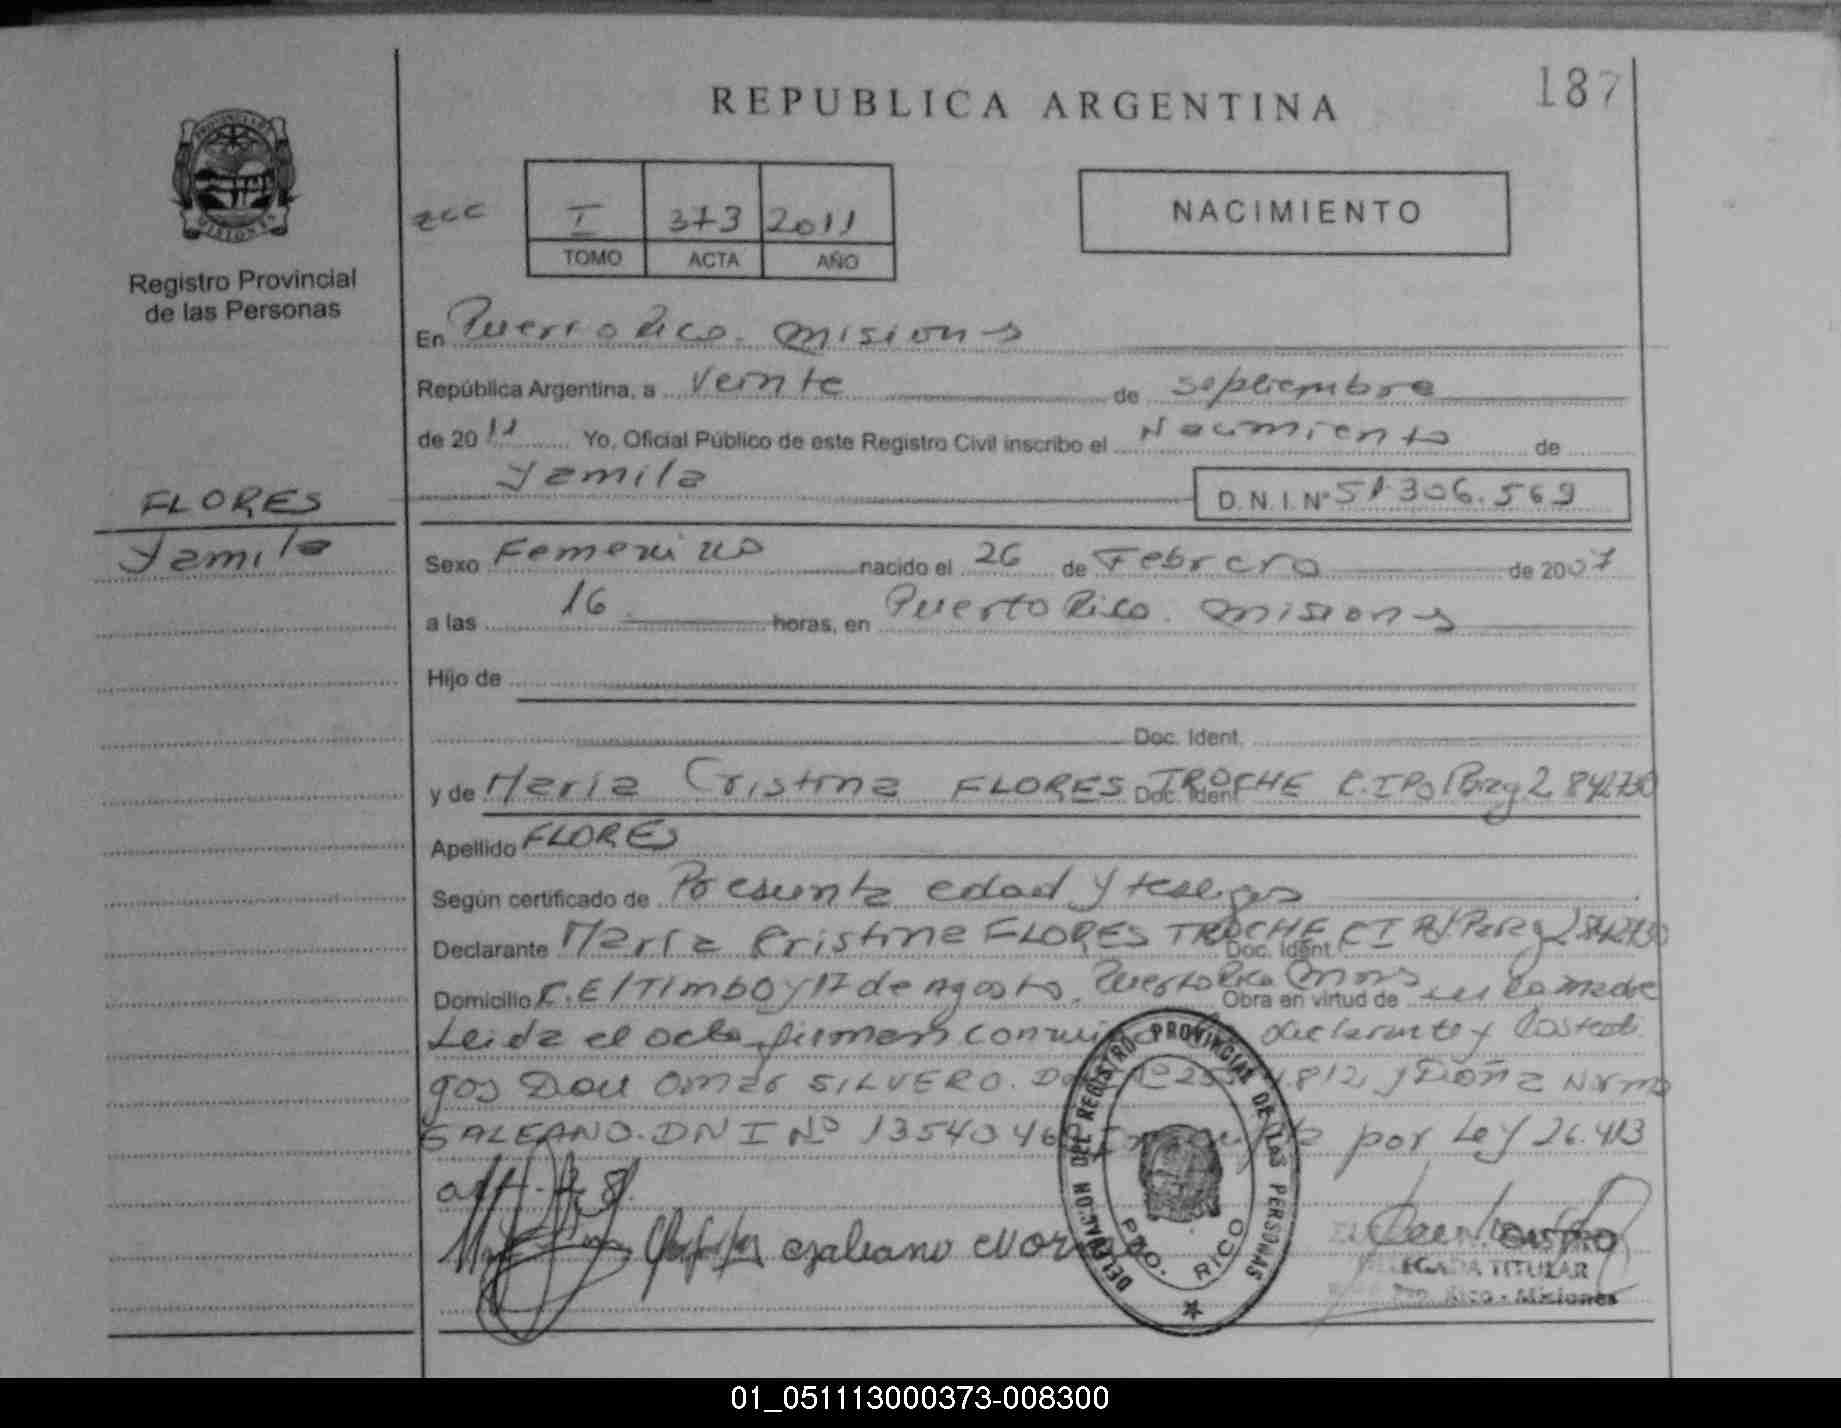 187
REPUBLICA ARGENTINA
PROVINCIA DE
MISIONES
Registro Provincial
de las Personas
I 373 2011
TOMO ACTA AÑO
NACIMIENTO
En Puerto Rico. Misiones
República Argentina, a Veinte de septiembre
de 2011 Yo, Oficial Público de este Registro Civil inscribo el Nacimiento de
Yamila
D. N. I. Nº 51.306.569
FLORES
Yamila
Sexo Femenino nacido el 26 de Febrero de 2007
a las 16 horas, en Puerto Rico. Misiones
Hijo de
Doc. Ident.
y de Maria Cristina FLORES TROCHE Doc. Ident C.I Po/Parag 2842730
Apellido FLORES
Según certificado de Presunta edad y testigos
Declarante Maria Cristina FLORES TROCHE Doc. Ident. CI P/Parag 2842730
Domicilio C. El Timbo y 17 de Agosto, Puerto Rico Mnes Obra en virtud de ser la madre
Leida el acta, firman conmigo declarante y los testi
gos Don Omar SILVERO. 812, y Doña Norma
GALEANO. DNI Nº 1354046 por Ley 26.413
art.
Galeano Nor
DELEGACION DEL REGISTRO PROVINCIAL DE LAS PERSONAS
PTO. RICO
CASTRO
DELEGADA TITULAR
Pto. Rico - Misiones
01_051113000373-008300